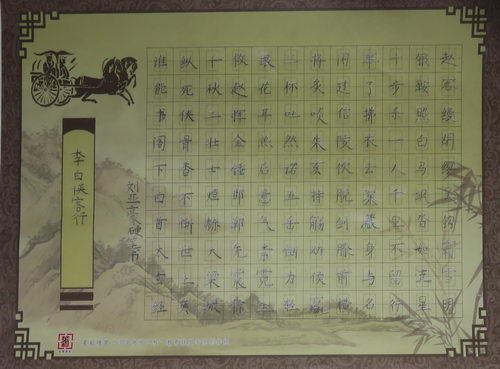 赵客缦胡缨吴钩霜雪明
银鞍照白马飒沓如流星
十步杀一人千里不留行
事了拂衣去深藏身与名
闲过信陵饮脱剑膝前横
将炙啖朱亥持觞劝侯嬴
三杯吐然诺五岳倒为轻
眼花耳热后意气素霓生
救赵挥金锤邯郸先震惊
千秋二壮士烜赫大梁城
纵死侠骨香不惭世上英
谁能书阁下白首太玄经
刘亚豪硬笔书
李白侠客行